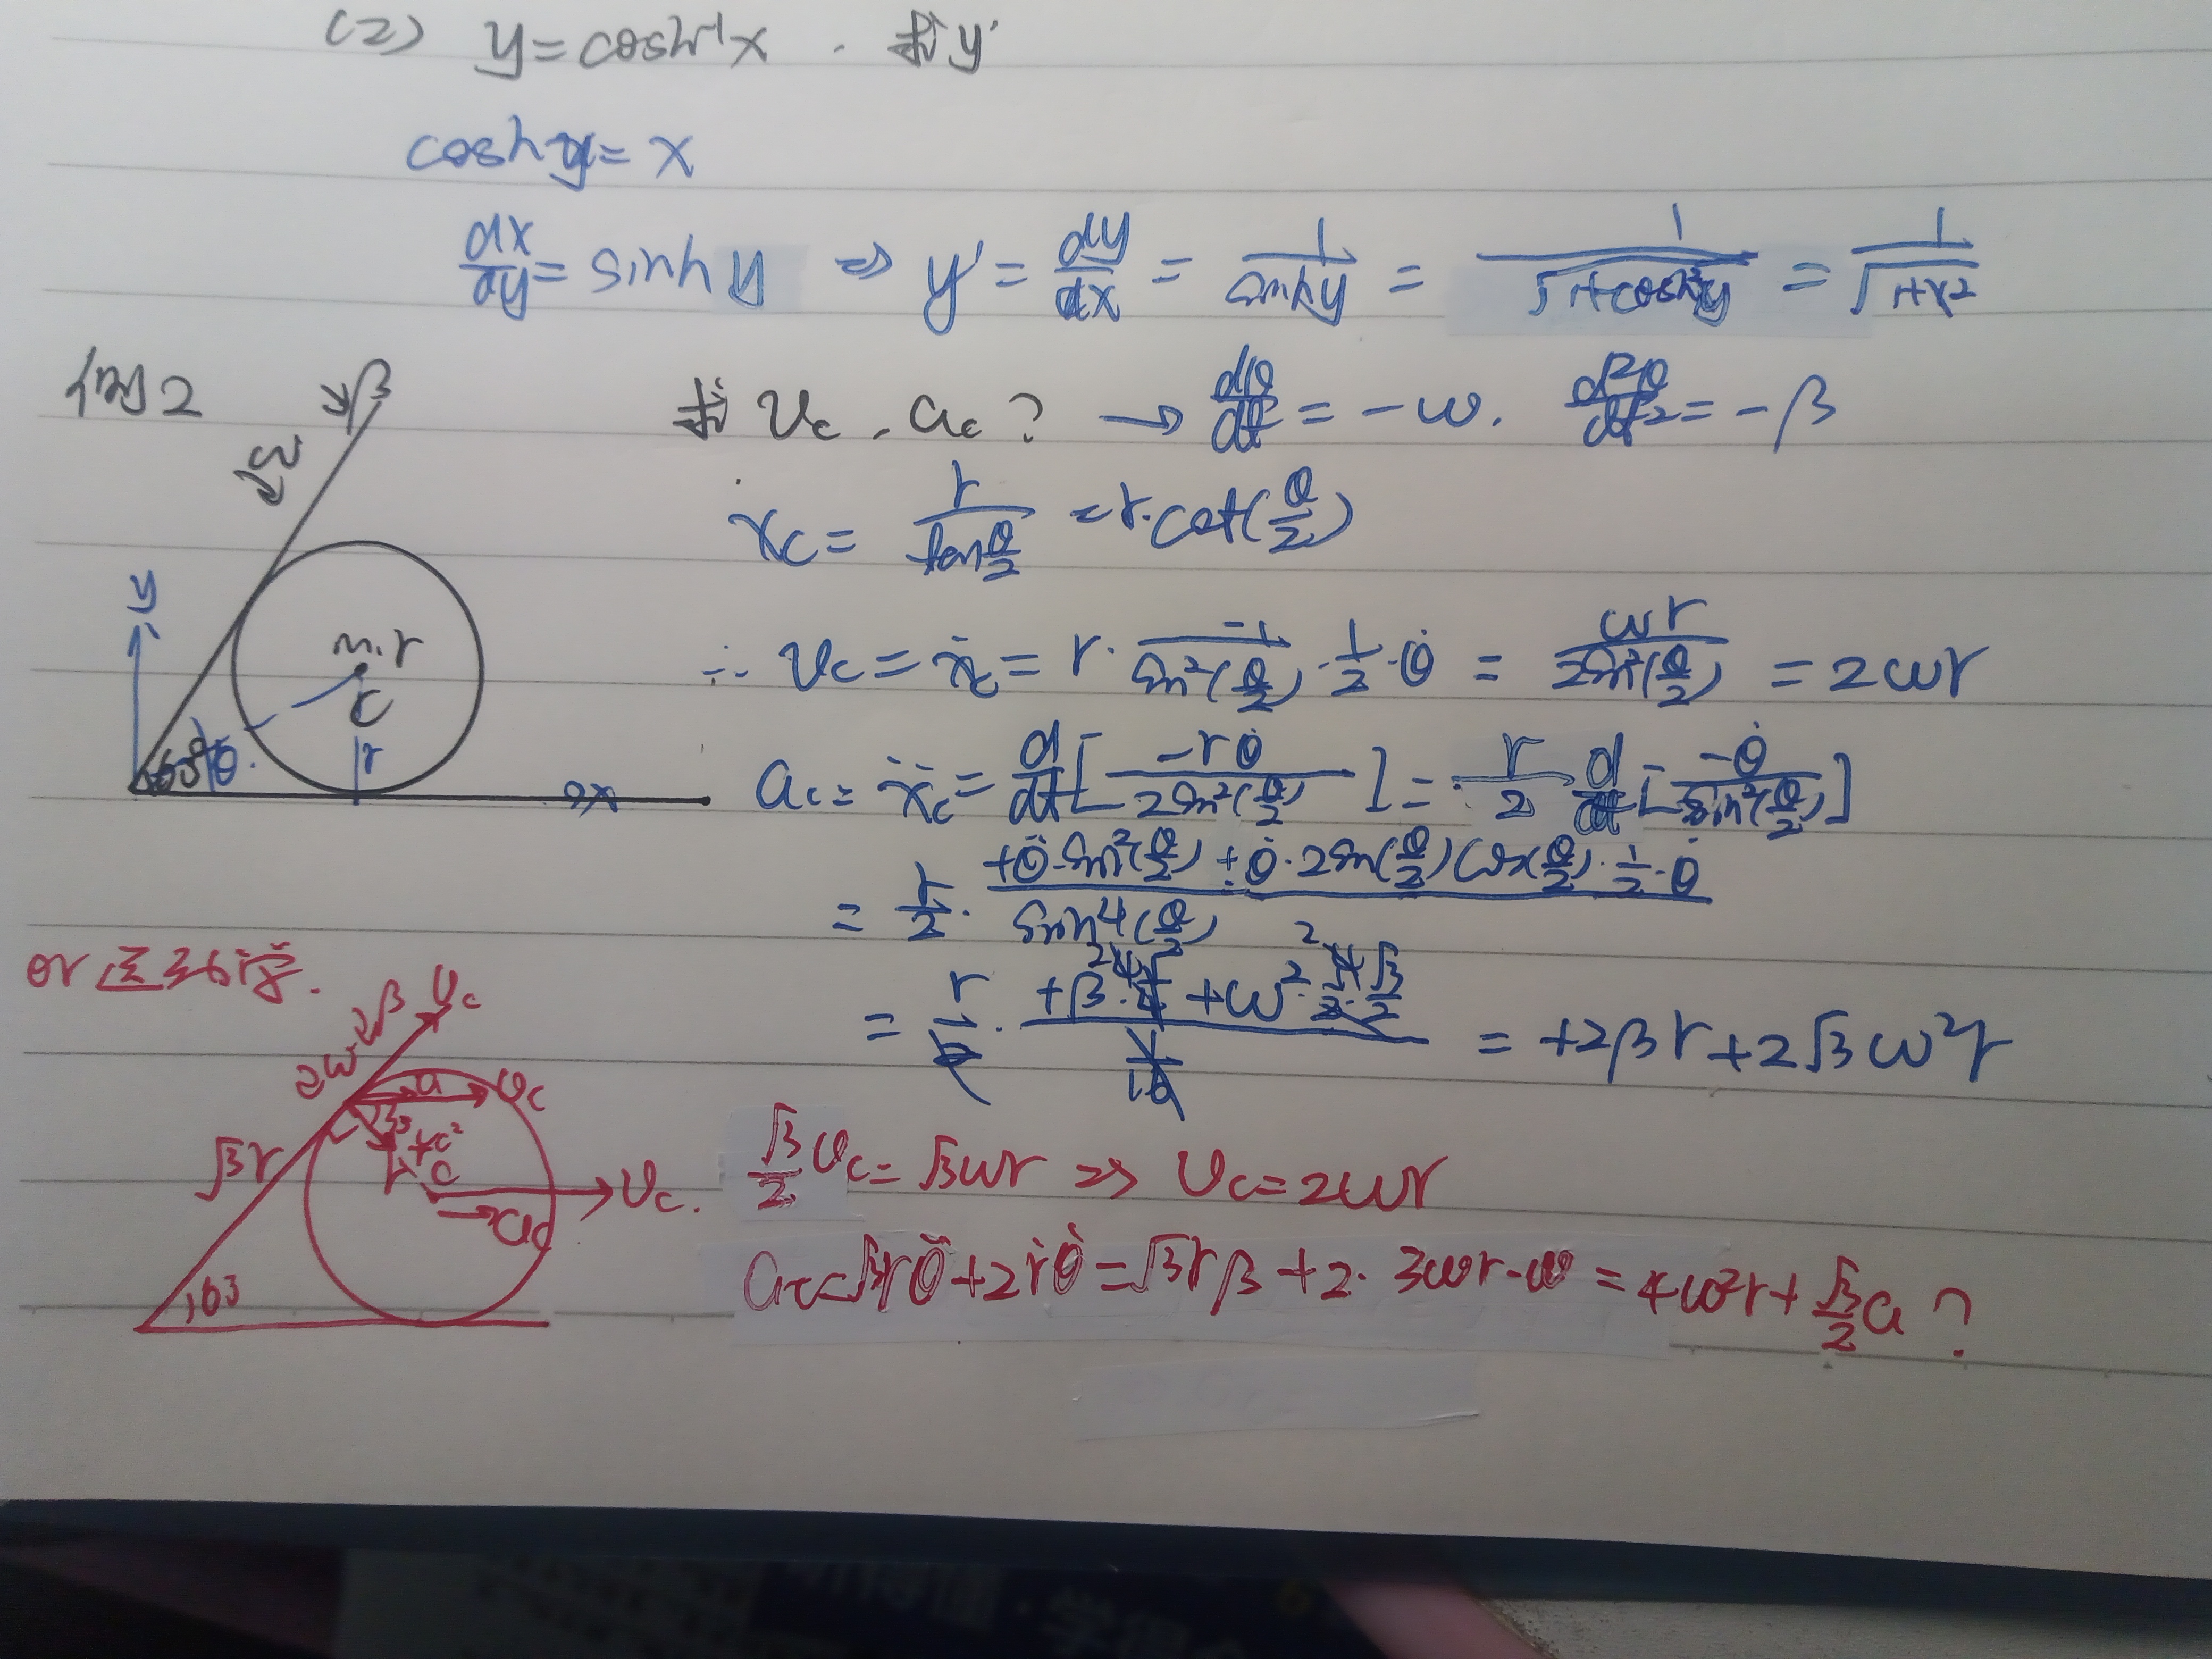 (2) y=cosh⁻¹x . 求y'
cosh y = x
dx/dy = sinh y ⇒ y' = dy/dx = 1/sinhy = 1/√(1+cosh²y) = 1/√(1+x²)
例2
β
ω
求 Vc . ac ? → dθ/dt = -ω. d²θ/dt² = -β
xc = r/tan(θ/2) = r·cot(θ/2)
y
m.r
C
r
60° θ
x
∴ Vc = ẋc = r · -1/sin²(θ/2) · 1/2 · θ̇ = ωr/2sin²(θ/2) = 2ωr
ac = ẍc = d/dt[-rθ̇/2sin²(θ/2)] = r/2 d/dt[-θ̇/sin²(θ/2)]
= r/2 · (+θ̈·sin²(θ/2) ± θ̇·2sin(θ/2)cos(θ/2)·1/2·θ̇)/sin⁴(θ/2)
= r/2 · (+β·1/4 + ω²·1/2·√3/2)/(1/16) = +2βr+2√3ω²r
or
2ω 2β Vc
a Vc
√3r
C
Vc.
ac
√3/2 Vc = √3ωr ⇒ Vc = 2ωr
ac = √3rθ̈ + 2ṙθ̇ = √3rβ + 2·3ωr·ω = 4ω²r + √3/2 a ?